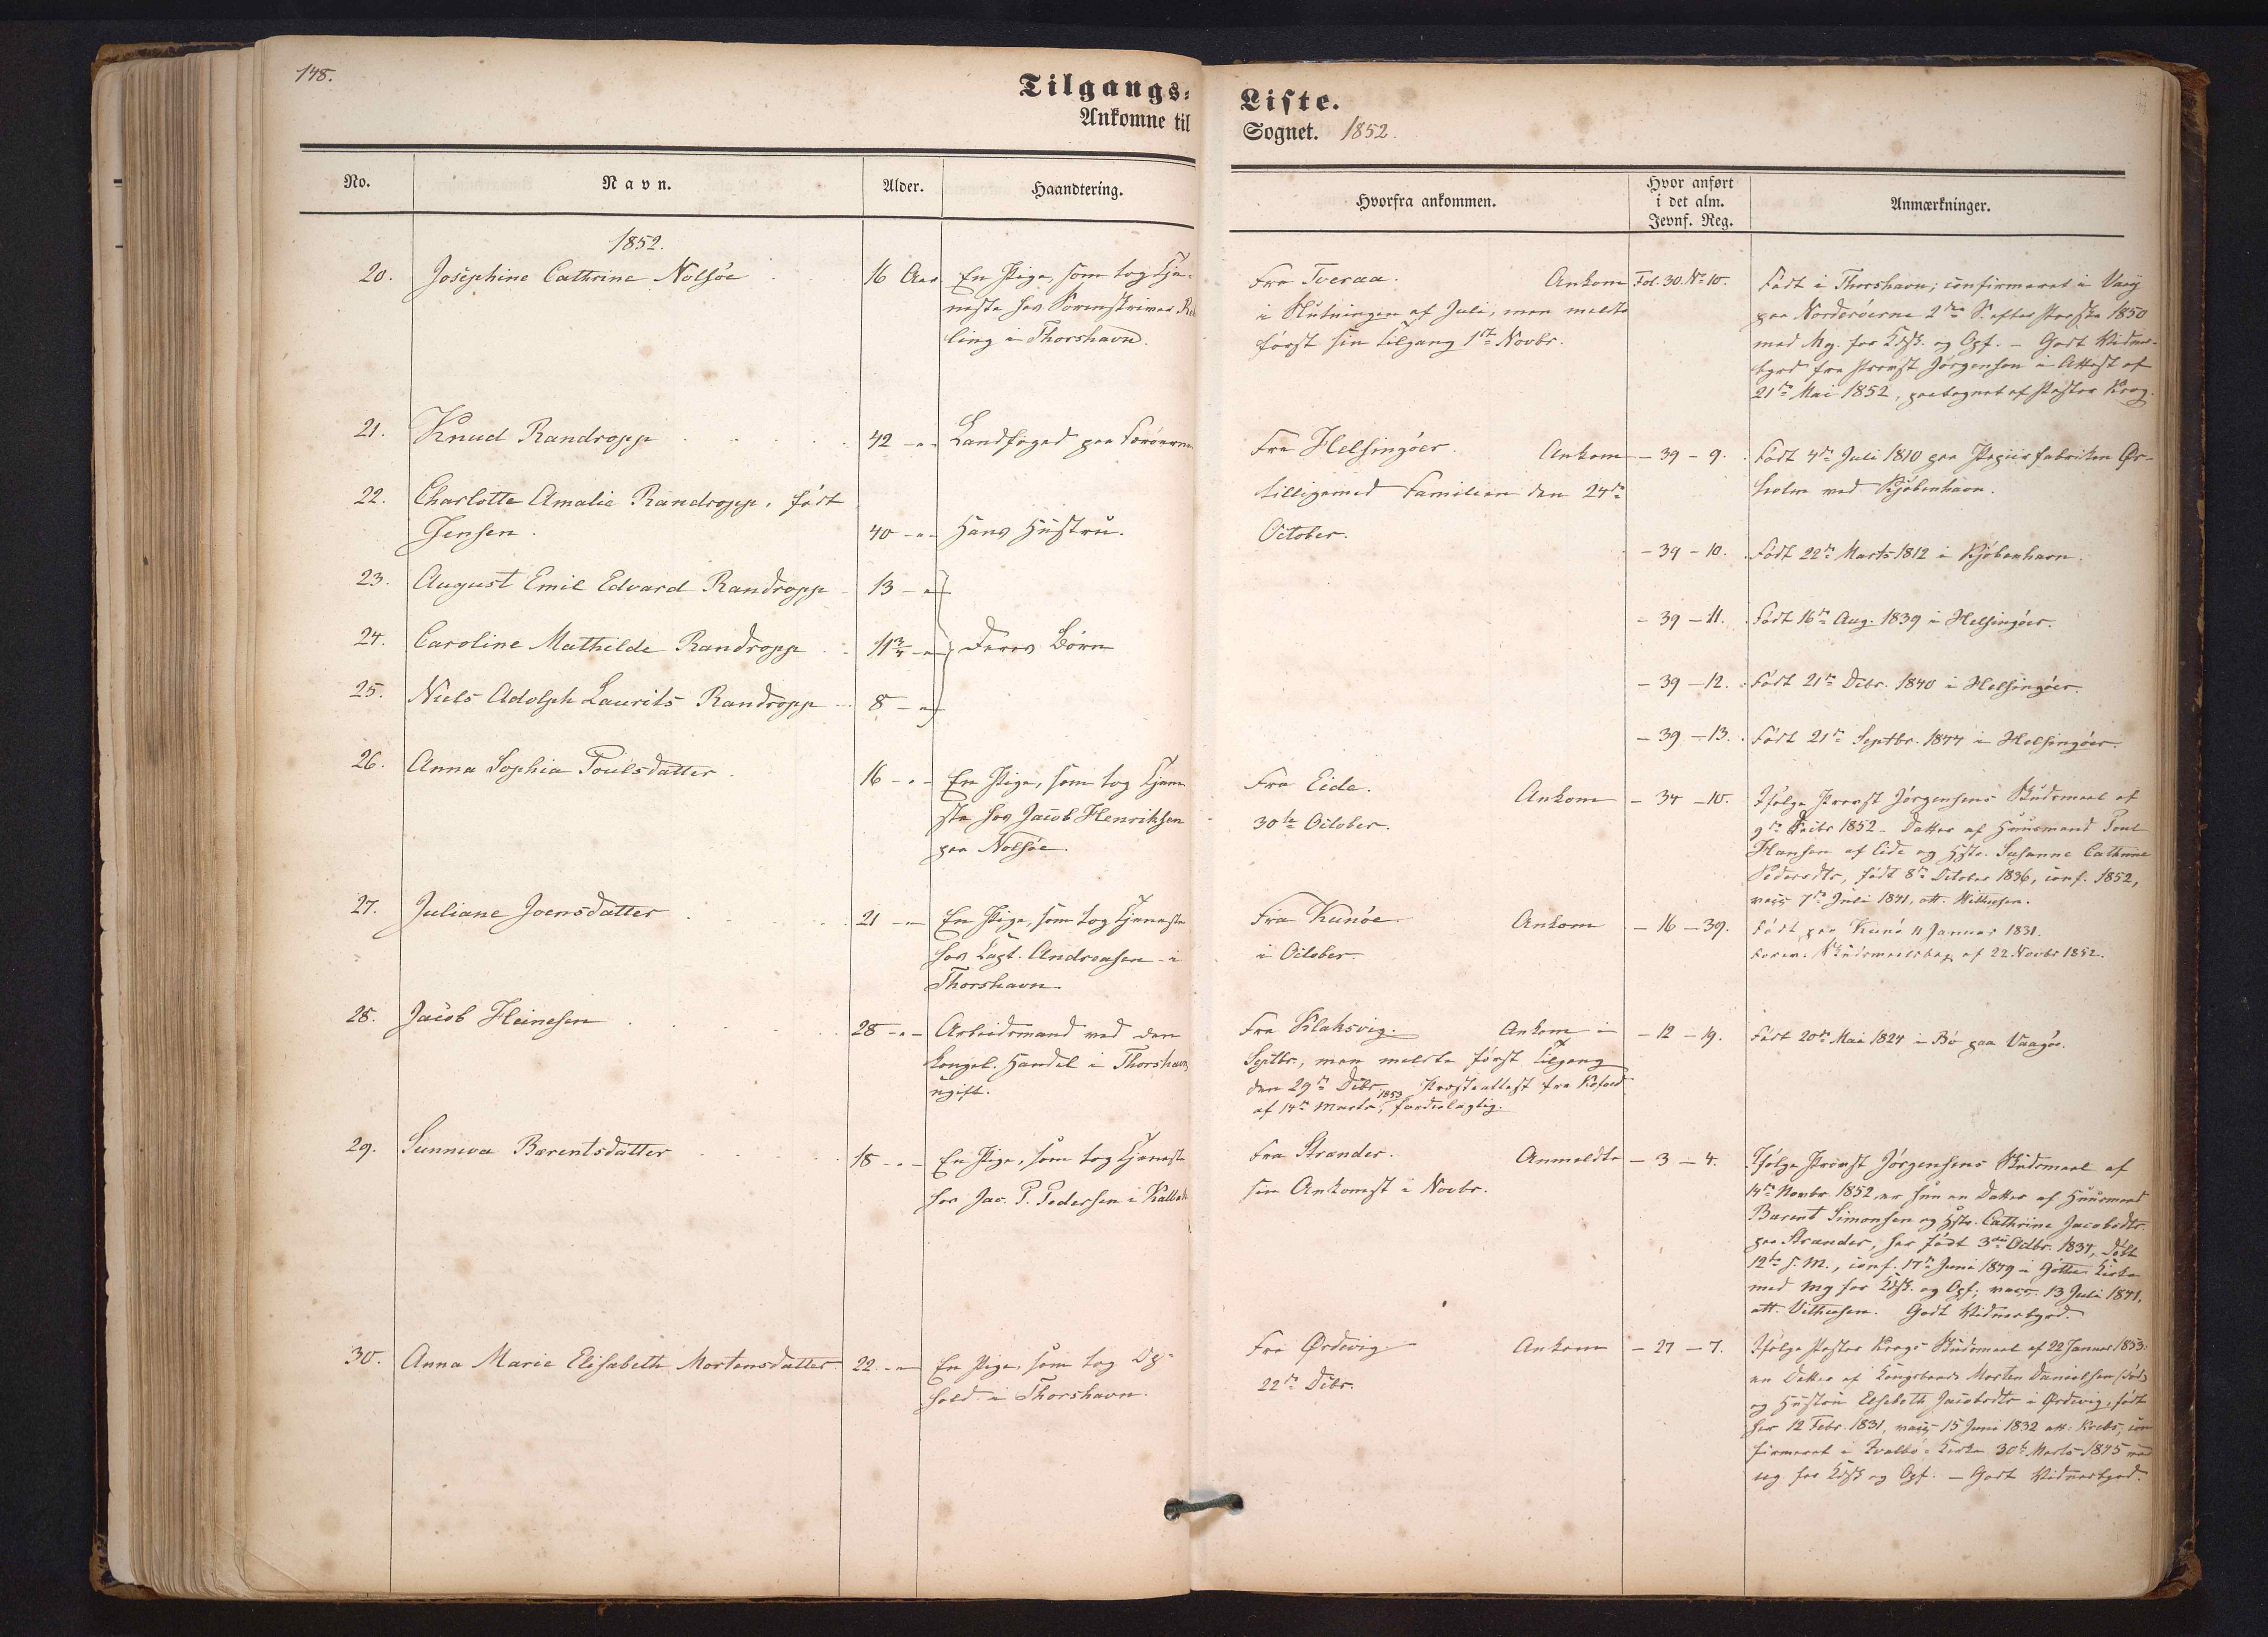 148.
Tilgangs=
Ankomne til
No.
Navn.
Alder.
Haandtering.
1852.
20. Josephine Cathrine Nolsöe
16 Aar.
En Pige, som tog Tje-
neste hos Sorenskriver
ling i Thorshavn.
21. Knud Randropp
42 -"-
Landfoged paa Færöerne
22. Charlotte Amalie Randropp, født
Jensen.
40 -"-
Hans Hustru.
23. August Emil Edvard Randropp
13 -"-
24. Caroline Mathilde Randropp
11 3/4 -"-
Deres Börn
25. Niels Adolph Laurits Randropp
8 -"-
26. Anna Sophia Poulsdatter
16 -"-
En Pige, som tog Tjene
ste hos Jacob Henriksen
paa Nolsöe.
27. Juliane Joensdatter
21 -"-
En Pige, som tog Tjeneste
hos Capt. Andreasen i
Thorshavn
28. Jacob Heinesen
28 -"-
Arbeidsmand ved den
Kongel. Handel i Thorshavn,
ugift.
29. Sunneva Barentsdatter
18 -"-
En Pige, som tog Tjeneste
hos Jac. P. Pedersen i
30. Anna Marie Elisabeth Mortensdatter
22 -"-
En Pige, som tog Op-
hold i Thorshavn.
Liste.
Sognet. 1852.
Hvorfra ankommen.
Hvor anført
i det alm.
Jevnf. Reg.
Anmærkninger.
Fra Tveraa. Ankom
i Slutningen af Juli, men meldte
först sin Tilgang 1ste Novbr.
Fol. 30. No 10.
Född i Thorshavn; confirmeret i Vaag
paa Norderöerne 2den S. efter Paaske 1850
med Mg. for Kdsk. og Opf. - Godt Vidnes-
byrd fra Provst Jörgensen i Attest af
21de Mai 1852, paategnet af Pastor Krog.
Fra Helsingöer. Ankom
tilligemed Familien den 24de
October.
- 39 - 9.
Födt 4de Juli 1810 paa Papiirfabriken Ør-
holm ved Kjöbenhavn.
- 39 - 10.
Födt 22de Marts 1812 i Kjöbenhavn.
- 39 - 11.
Födt 16de Aug. 1839 i Helsingöer.
- 39 - 12.
Födt 21de Decbr. 1840 i Helsingöer.
- 39 - 13.
Födt 21de Septbr. 1844 i Helsingöer.
Fra Eide. Ankom
30te October.
- 34 - 10.
Ifölge Provst Jörgensens Skudsmaal af
9de 1852 - Datter af Huusmand Poul
Hansen af Eide og Hstr. Susanne Cathrine
Pedersdtr, födt 8de October 1836, conf. 1852,
vacc. 7de Juli 1841, att.
Fra Kunöe Ankom
i October.
- 16 - 39.
Födt paa Kunö 11 Januar 1831.
Skudsmaalsbog af 22 Novbr 1852.
Fra Klaksvig. Ankom i
Septbr, men meldte först Tilgang
den 29de Decbr. Præsteattest fra
af 14de Marts 1853, fordeelagtig.
- 12 - 19.
Födt 20de Mai 1824 i Bö paa Vaagöe.
Fra Strander. Anmeldte
sin Ankomst i Novbr.
- 3 - 4.
Ifölge Provst Jörgensens Skudsmaal af
14de Novbr 1852 er hun en Datter af Huusmand
Barent Simonsen og Hstr. Cathrine Jacobsdtr.
paa Strander, her födt 3die Octbr. 1834, döbt
12te s. M., conf. 17de Juni 1849 i Göthe Kirke
med mg for Kdsk. og Opf; vacc. 13 Juli 1841,
att. Godt Vidnesbyrd.
Fra Ørdevig Ankom
22de Decbr.
- 27 - 7.
Ifölge Pastor Krogs Skudsmaal af 22 Januar 1853:
en Datter af Kongsbonde Morten Danielsen
og Hustru Elsebeth Jacobsdtr i Ørdevig, födt
her 12 Febr. 1831, vacc. 15 Juni 1832 att. Krebs, con
firmeret i Kirke 30te Marts 1845 med
ug for Kdsk og Opf. - Godt Vidnesbyrd.